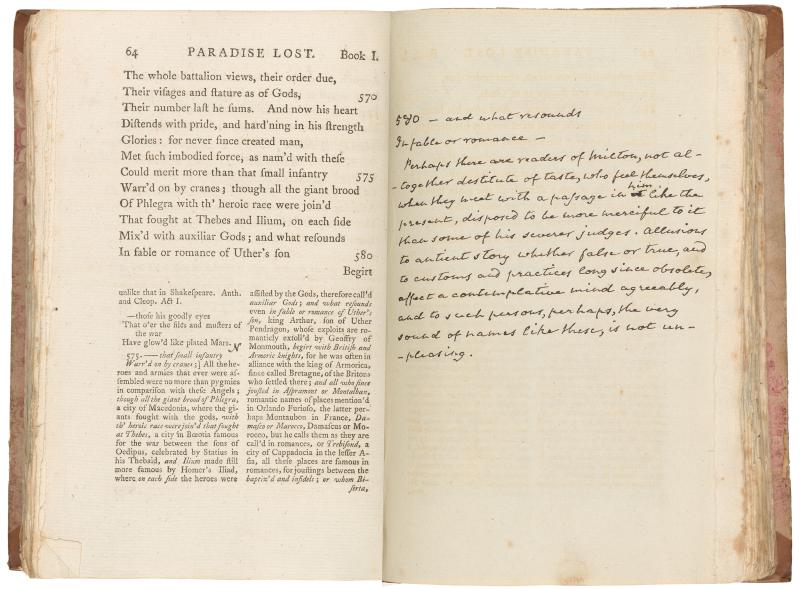 64 PARADISE LOST. Book I.
The whole battalion views, their order due,
Their viſages and ſtature as of Gods, 570
Their number laſt he ſums. And now his heart
Diſtends with pride, and hard'ning in his ſtrength
Glories: for never ſince created man,
Met ſuch imbodied force, as nam'd with theſe
Could merit more than that ſmall infantry 575
Warr'd on by cranes; though all the giant brood
Of Phlegra with th' heroic race were join'd
That fought at Thebes and Ilium, on each ſide
Mix'd with auxiliar Gods; and what reſounds
In fable or romance of Uther's ſon 580
Begirt
unlike that in Shakeſpeare. Anth.
and Cleop. Act I.
—thoſe his goodly eyes
That o'er the files and muſters of
the war
Have glow'd like plated Mars.
N
575. — that ſmall infantry
Warr'd on by cranes; All the he-
roes and armies that ever were aſ-
ſembled were no more than pygmies
in compariſon with theſe Angels;
though all the giant brood of Phlegra,
a city of Macedonia, where the gi-
ants fought with the gods, with
th' heroic race were join'd that fought
at Thebes, a city in Bœotia famous
for the war between the ſons of
Oedipus, celebrated by Statius in
his Thebaid, and Ilium made ſtill
more famous by Homer's Iliad,
where on each ſide the heroes were
aſſiſted by the Gods, therefore call'd
auxiliar Gods; and what reſounds
even in fable or romance of Uther's
ſon, king Arthur, ſon of Uther
Pendragon, whoſe exploits are ro-
manticly extoll'd by Geoffry of
Monmouth, begirt with Britiſh and
Armoric knights, for he was often in
alliance with the king of Armorica,
ſince called Bretagne, of the Britons
who ſettled there; and all who ſince
jouſted in Aſpramont or Montalban,
romantic names of places mention'd
in Orlando Furioſo, the latter per-
haps Montaubon in France, Da-
maſco or Marocco, Damaſcus or Mo-
rocco, but he calls them as they are
call'd in romances, or Trebiſond, a
city of Cappadocia in the leſſer A-
ſia, all theſe places are famous in
romances, for jouſtings between the
baptiz'd and infidels; or whom Bi-
ſerta,
580 — and what resounds
In fable or romance —
Perhaps there are readers of Milton, not al-
-together destitute of taste, who feel themselves,
when they meet with a paſsage in him like the
present, disposed to be more merciful to it
than some of his severer judges. Allusions
to antient story whether false or true, and
to customs and practices long since obsolete,
affect a contemplative mind agreeably,
and to such persons, perhaps, the very
sound of names like these, is not un-
-pleasing.